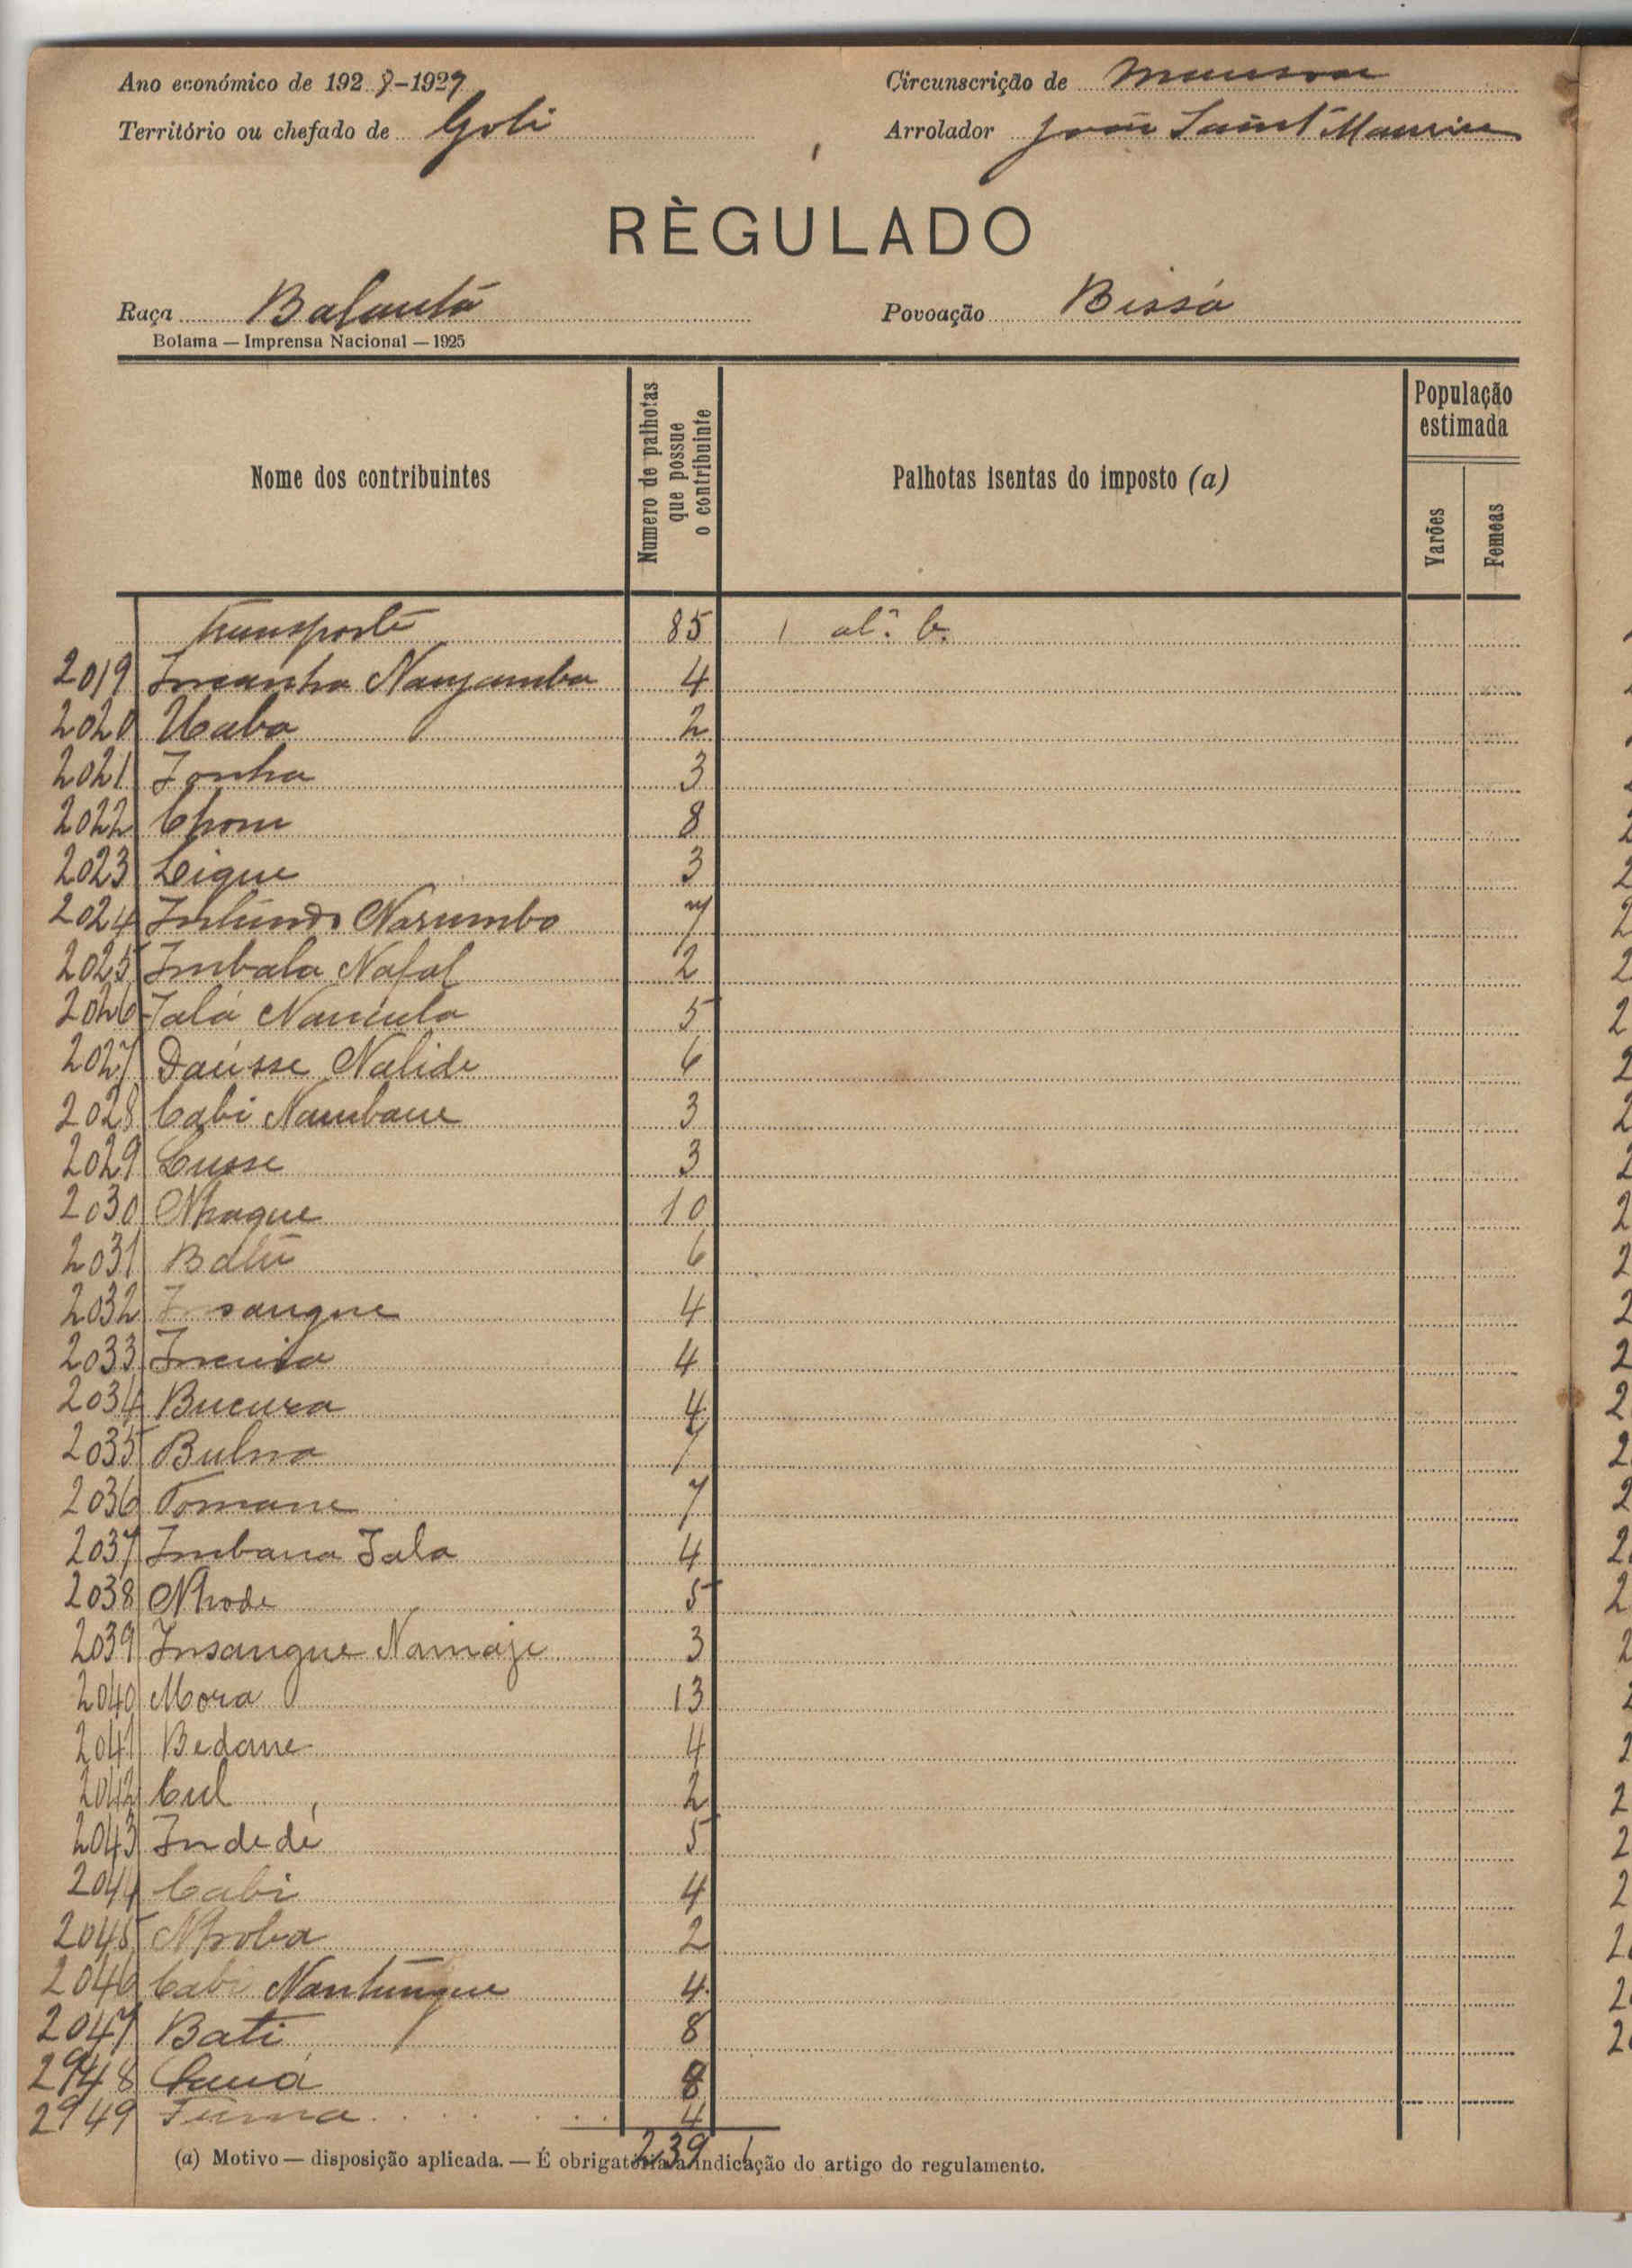 Ano económico de 1928-1929
Circunscrição de Mansoa
Território ou chefado de Goli
Arrolador João Saint Maurice
RÈGULADO
Raça Balanta
Povoação Bissá
Bolama — Imprensa Nacional — 1925
Nome dos contribuintes
Numero de palhotas que possue o contribuinte
Palhotas isentas do imposto (a)
População estimada
Varões
Femeas
Transporte 85 1 al.ª b.
2019 Incanha Nanjamba 4
2020 Uaba 2
2021 Jonha 3
2022 Chom 8
2023 Cique 3
2024 Narumbo 7
2025 Imbala Nafal 2
2026 Jalá 5
2027 Daússe Nalide 6
2028 Cabi Nambane 3
2029 Cusse 3
2030 Nhaque 10
2031 Batu 6
2032 Insangue 4
2033 4
2034 Bucura 4
2035 Bulna 7
2036 Tomane 7
2037 Imbana Jala 4
2038 Nhode 5
2039 Insangue Namaje 3
2040 Mora 13
2041 Bedane 4
2042 Cul 2
2043 Indedé 5
2044 Cabi 4
2045 Nhoba 2
2046 Cabi Nantúngue 4
2047 Bati 8
2948 8
2949 4
239 1
(a) Motivo — disposição aplicada. — É obrigatória a indicação do artigo do regulamento.